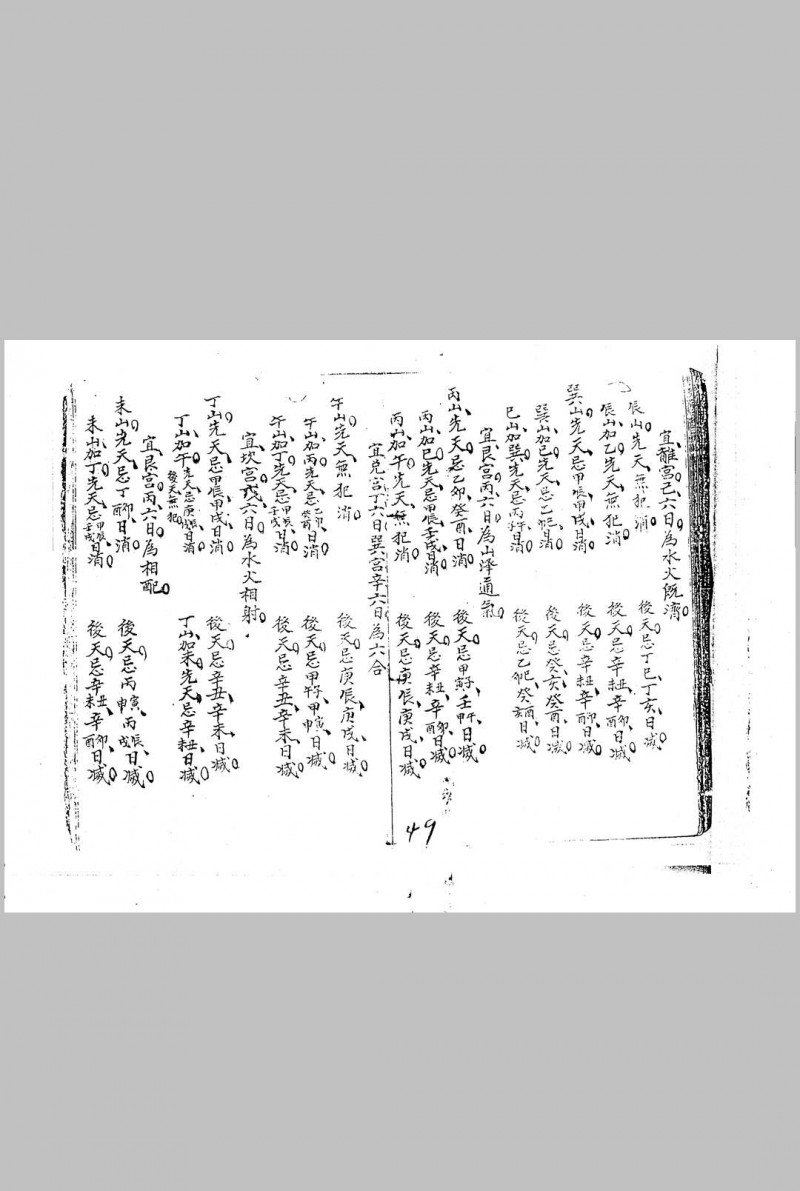 宜離宮己六日為水火既濟。
辰山先天無犯消。 後天忌丁巳丁亥日滅。
辰山加乙先天無犯消。 後天忌辛丑辛未辛卯辛酉日滅。
巽山先天忌甲辰甲戌日消。 後天忌辛丑辛未辛卯辛酉日滅。
巽山加巳先天忌乙巳日消。 後天忌癸亥癸酉日滅。
巳山加巽先天忌丙日消。 後天忌乙卯癸亥日滅。
宜艮宮丙六日為山澤通氣。
丙山先天忌乙卯癸酉日消。 後天忌甲壬日滅。
丙山加巳先天忌甲辰壬戌日消。 後天忌辛丑辛未辛卯辛酉日滅。
丙山加午先天無犯消。 後天忌庚辰庚戌日滅。
宜兌宮丁六日巽宮辛六日為六合
午山先天無犯消。 後天忌庚辰庚戌日滅。
午山加丙先天忌乙卯癸酉日消。 後天忌甲子甲午甲寅甲申日滅。
午山加丁先天忌甲辰壬戌日消。 後天忌辛丑辛未日滅。
宜坎宮戊六日為水火相射。
丁山先天忌甲辰甲戌日消。 後天忌辛丑辛未日滅。
丁山加午先天忌庚辰庚戌日消。後天無犯 丁山加未先天忌辛丑辛未日滅。
宜艮宮丙六日為相配。
未山先天忌丁卯丁酉日消。 後天忌丙寅丙申丙辰丙戌日滅。
未山加丁先天忌甲辰壬戌日消。 後天忌辛丑辛未辛卯辛酉日滅。
49